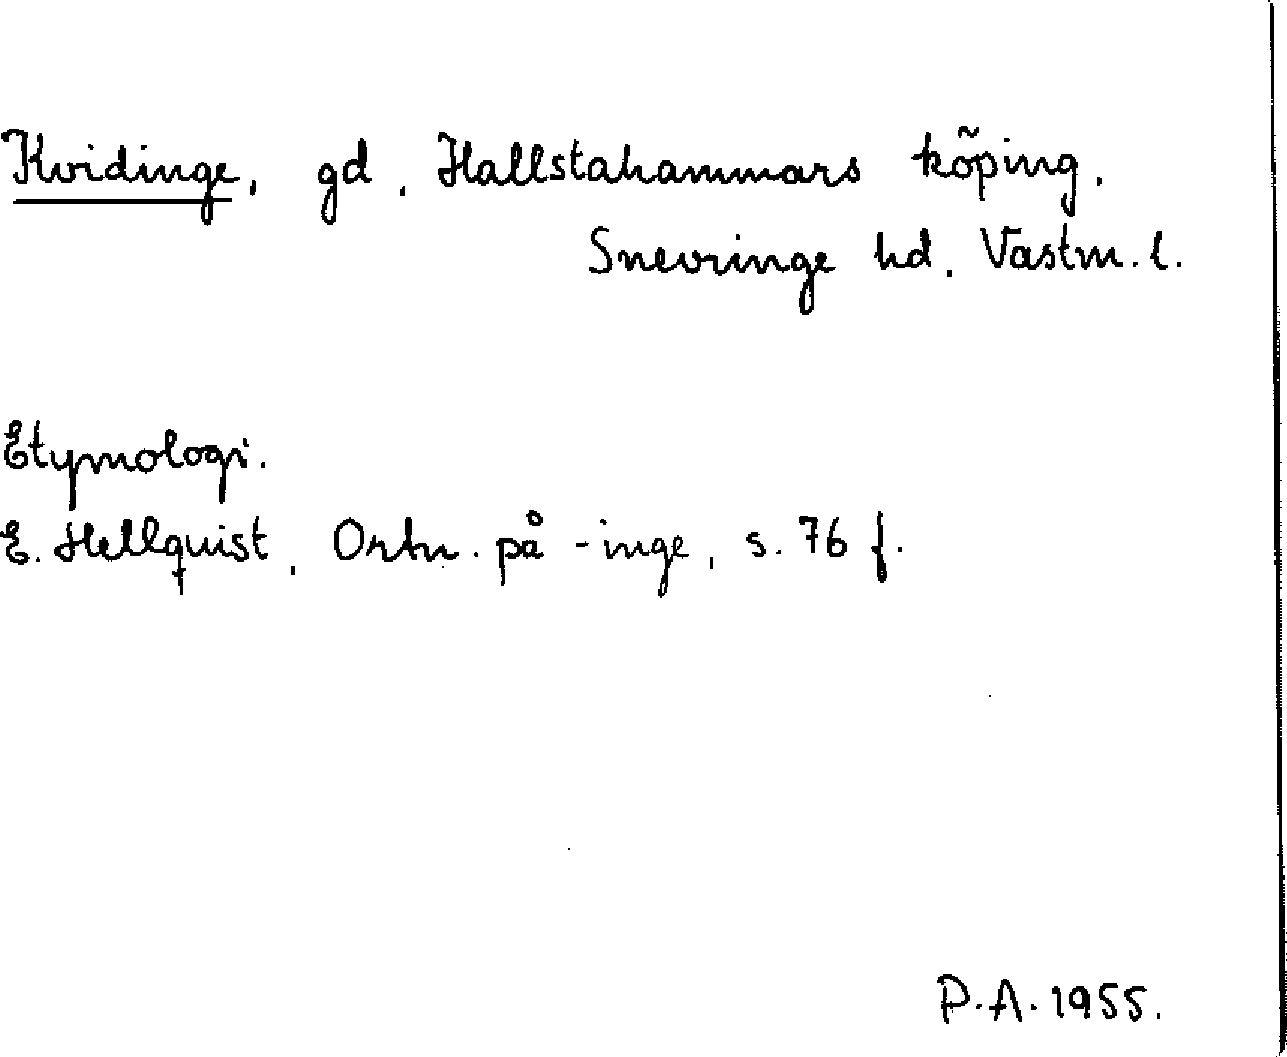 Kvidinge, gd, Hallstahammars köping,
Snevringe hd, Västm. l.
Etymologi.
E. Hellquist, Ortn. på -inge, s. 76 f.
P.A. 1955.